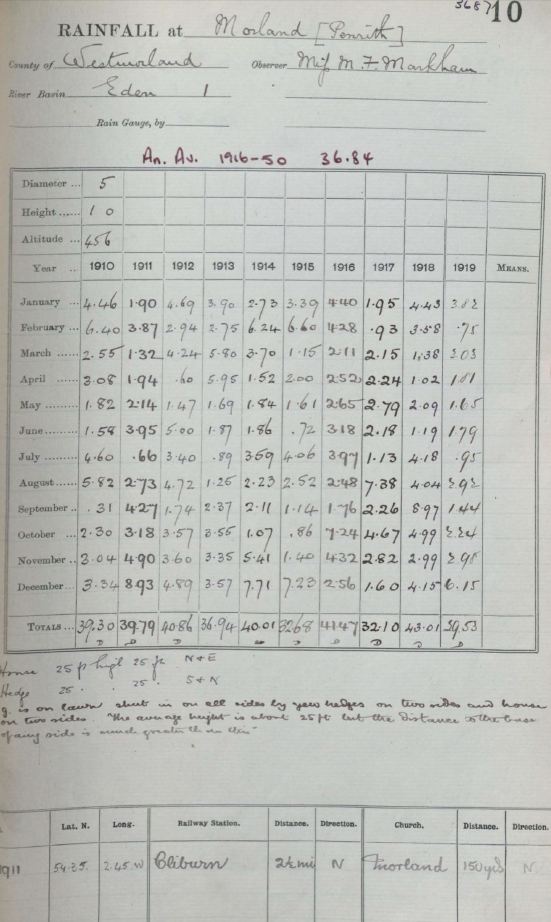 3687 10
RAINFALL at Morland [Penrith]
County of Westmorland Observer Miss M. F. Markham
River Basin Eden 1
Rain Gauge, by
An. Av. 1916-50 36.84
Diameter ... 5
Height ...... 1 0
Altitude ... 456
Year .. 1910 1911 1912 1913 1914 1915 1916 1917 1918 1919 MEANS.
January ... 4.46 1.90 4.69 3.90 2.73 3.39 4.40 1.95 4.43 3.82
February ... 6.40 3.87 2.94 2.75 6.24 6.60 4.28 .93 3.58 .75
March ...... 2.55 1.32 4.24 5.80 3.70 1.15 2.11 2.15 1.38 3.03
April ...... 3.08 1.94 .60 5.95 1.52 2.00 2.52 2.24 1.02 1.81
May ......... 1.82 2.14 1.47 1.69 1.84 1.61 2.65 2.79 2.09 1.65
June ......... 1.58 3.95 5.00 1.87 1.86 .72 3.18 2.18 1.19 1.79
July ......... 4.60 .66 3.40 .89 3.59 4.06 3.97 1.13 4.18 .95
August ...... 5.82 2.73 4.72 1.25 2.23 2.52 2.48 7.38 4.04 2.92
September .. .31 4.27 1.74 2.37 2.11 1.14 1.76 2.26 8.97 1.44
October ... 2.30 3.18 3.57 3.55 1.07 .86 7.24 4.67 4.99 2.24
November .. 3.04 4.90 3.60 3.35 5.41 1.40 4.32 2.82 2.99 2.98
December ... 3.34 8.93 4.89 3.57 7.71 7.23 2.56 1.60 4.15 6.15
TOTALS ... 39.30 39.79 40.86 36.94 40.01 32.68 41.47 32.10 43.01 29.53
House 25 ft high 25 ft N & E
Hedge 25 . . 25 . S & W
g. is on lawn shut in on all sides by yew hedges on two sides and house
on two sides. The average height is about 25 ft but the distance to the base
of any side is much greater than this
Lat. N. Long. Railway Station. Distance. Direction. Church. Distance. Direction.
1911 54.35. 2.45 W Cliburn 2½ mi N Morland 150 yds N